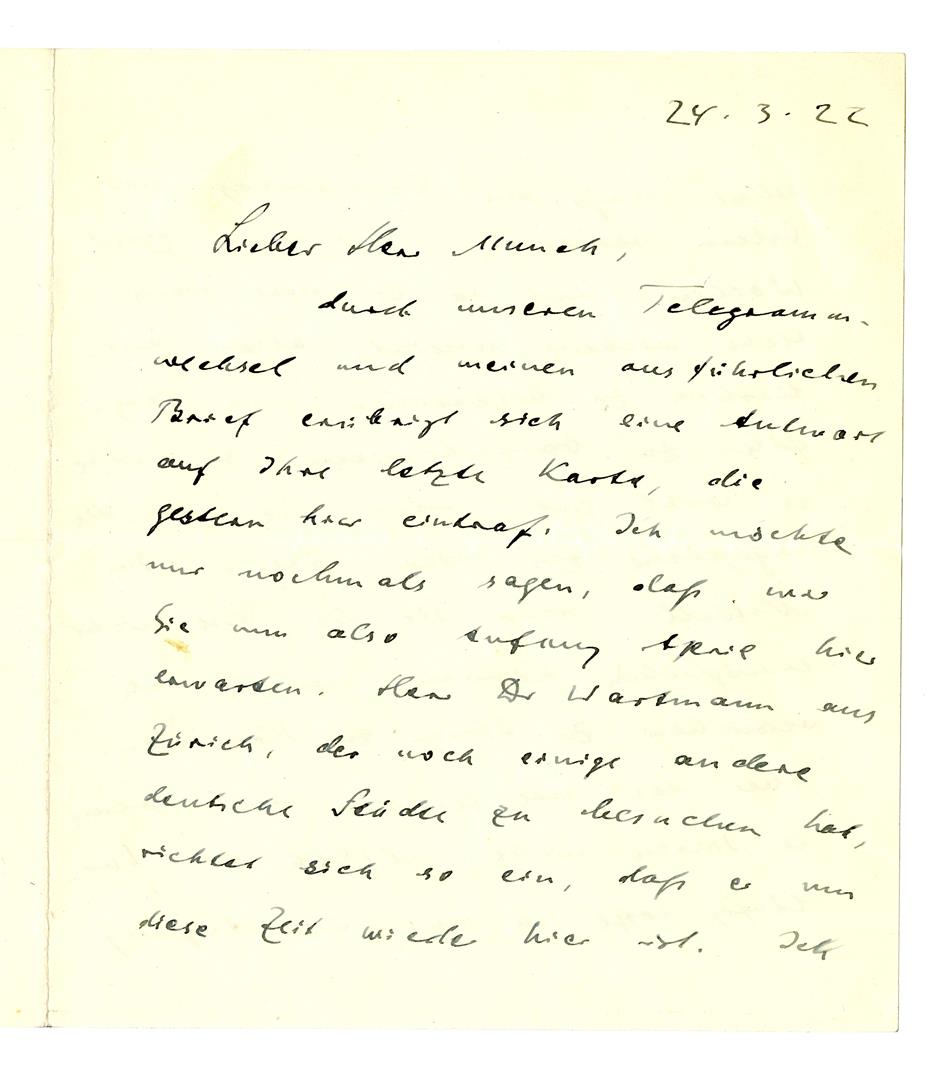 24.3.22
Lieber Herr Munch,
durch unseren Telegramm-
wechsel und meinen ausführlichen
Brief erübrigt sich eine Antwort
auf Ihre letzte Karte, die
gestern hier eintraf. Ich möchte
nur nochmals sagen, daß wir
Sie nun also Anfang April hier
erwarten. Herr Dr Wartmann aus
Zürich, der noch einige andere
deutsche Städte zu besuchen hat,
richtet sich so ein, daß er um
diese Zeit wieder hier ist. Ich